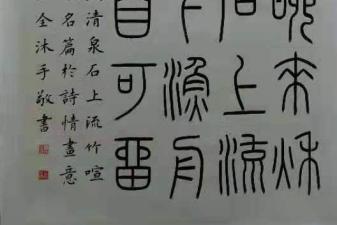 晚來秋
石上流
下漁舟
自可留
清泉石上流竹喧
名篇於詩情畫意
全沐手敬書